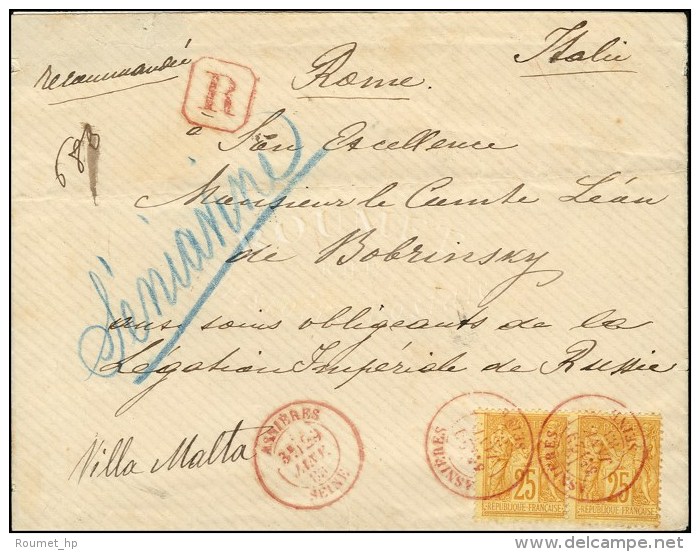 Italie
recommandée
Rome.
R
683
à Son Excellence
Monsieur le Comte Léon
de Bobrinsky
aux soins obligeants de la
Légation Impériale de Russie
Villa Malta
ASNIÈRES
SEINE
ASNIÈRES
SEINE
ASNIÈRES
SEINE
25
REPUBLIQUE FRANÇAISE
25
REPUBLIQUE FRANÇAISE
Roumet_hp
delcampe.net